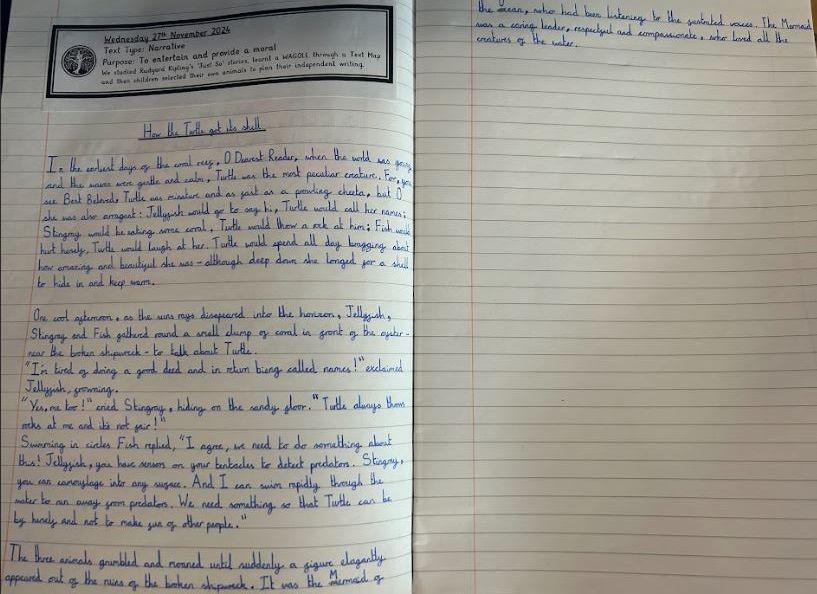 Wednesday 27th November 2024
Text Type: Narrative
Purpose: To entertain and provide a moral
We studied Rudyard Kipling's 'Just So' stories, learnt a WAGOLL through a Text Map
and then children selected their own animals to plan their independent writing.
How the Turtle got its shell.
In the earliest days of the coral reef, O Dearest Reader, when the world was young
and the waves were gentle and calm, Turtle was the most peculiar creature. For, you
see Best Beloved, Turtle was minature and as fast as a prowling cheeta, but O
she was also arragent: Jellyfish would go to say hi, Turtle would call her names;
Stingray would be eating some coral, Turtle would throw a rock at him; Fish would
hurt herself, Turtle would laugh at her. Turtle would spend all day bragging about
how amazing and beautiful she was - although deep down she longed for a shell
to hide in and keep warm.
One cool afternoon, as the suns rays disapeared into the horizon, Jellyfish,
Stingray and Fish gathered round a small clump of coral in front of the oyster -
near the broken shipwreck - to talk about Turtle.
"I'm tired of doing a good deed and in return bieng called names!" exclaimed
Jellyfish, frowning.
"Yes, me too!" cried Stingray, hiding on the sandy floor. "Turtle always throws
rocks at me and it's not fair!"
Swimming in circles Fish replied, "I agree, we need to do something about
this! Jellyfish, you have sensors on your tentacles to detect predators. Stingray,
you can camouflage into any surface. And I can swim rapidly through the
water to run away from predators. We need something so that Turtle can be
by herself and not to make fun of other people."
The three animals grumbled and moaned until suddenly a figure elegantly
appeared out of the ruins of the broken shipwreck. It was the Mermaid of
the ocean, who had been listening to the frustrated voices. The Mermaid
was a caring leader, respectful and compassionate, who loved all the
creatures of the water.